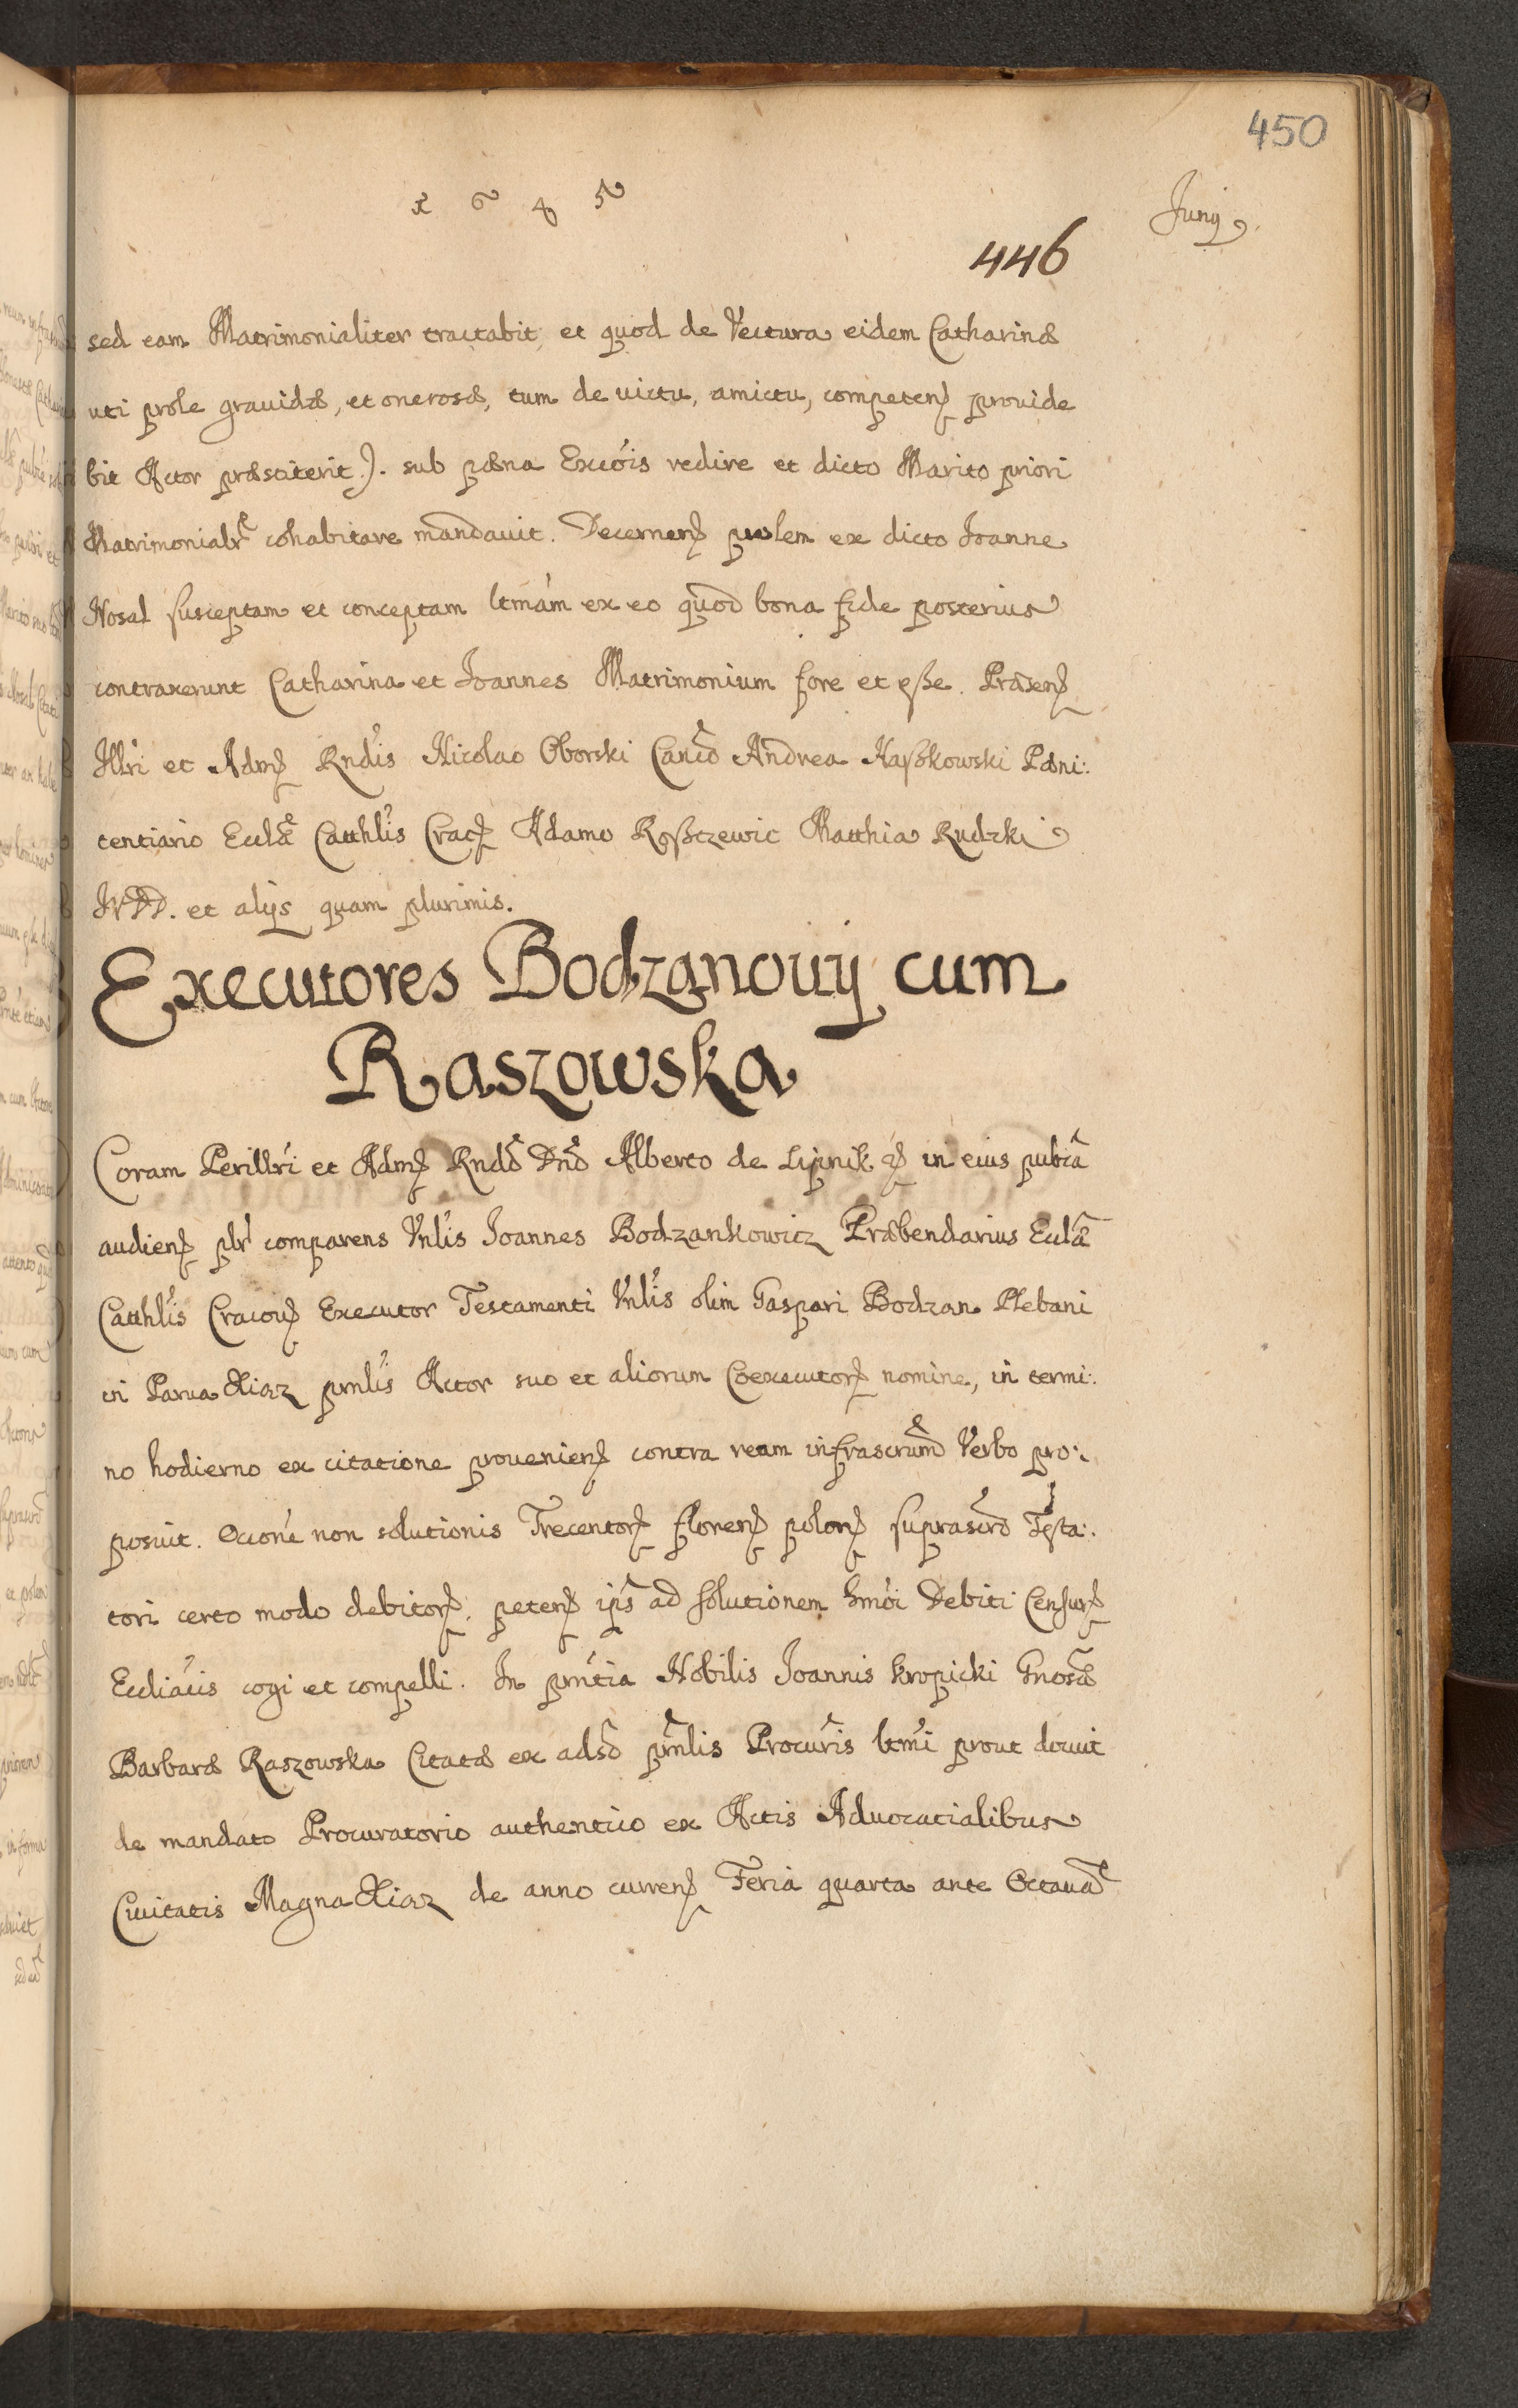 450
1645
Junij
446
sed eam Matrimonialiter tractabit, et quod de Vectura eidem Catharinæ
uti prole grauidæ, et onerosæ, tum de uictu, amictu, competen provide
bit Actor præsciterit). sub pæna Excoïs redire et dicto Marito priori
Matrimonialr cohabitare mandauit. Decernen prolem ex dicto Joanne
Nosal susceptam et conceptam ltmam ex eo quod bona fide posterius
contraxerunt Catharina et Joannes Matrimonium fore et esse. Præsen
Illri et Adm Rndis Nicolao Oborski Canco Andrea Naßkowski Pæni:
tentiario Eccla Catthlis Crac Adamo Roßczewic Matthia Rudzki
JVDD. et alijs quam plurimis.
Executores Bodzanouij cum
Raszowska
Coram Perillri et Adm Rndo Dno Alberto de Lipnik in eius publca
audien plr comparens Vnlis Joannes Bodzankowicz Præbendarius Eccla
Catthlis Cracou Executor Testamenti Vnlis olim Gaspari Bodzan Plebani
in Parua Xiąz prnlis Actor suo et aliorum Coexecutor nomine, in termi:
no hodierno ex citatione provenien contra ream infrascrum Verbo pro:
posuit. Occone non solutionis Trecentor floren polon suprascro Testa:
tori certo modo debitor, peten ips ad solutionem hmoi Debiti Censur
Eccliacis cogi et compelli. In prntia Nobilis Joannis Kropicki Gnosæ
Barbaræ Raszowska Citatæ ex adso prnlis Procuris ltmi prout docuit
de mandato Procuratorio authentico ex Actis Aduocatialibus
Ciuitatis Magna Xiąz de anno curren Feria quarta ante Octaua